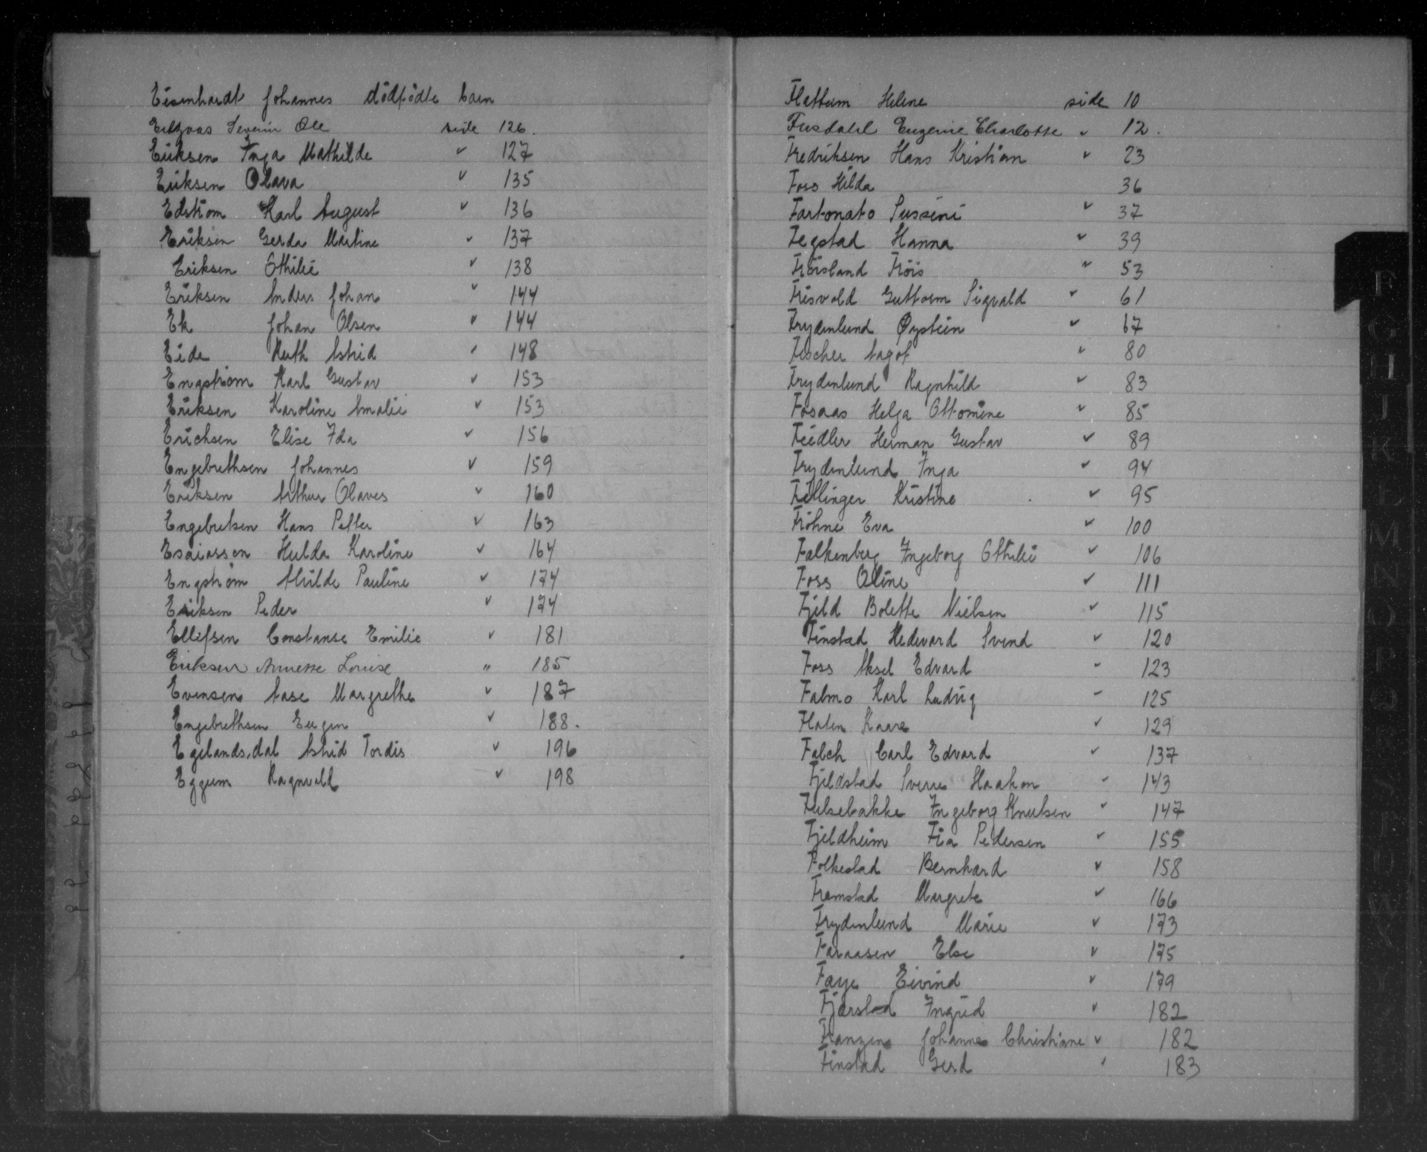 Eisenhardt Johannes dödfödte barn
Severin Ole side 126.
Eriksen Inga Mathilde " 127
Eriksen Olava " 135
Edström Karl August " 136
Eriksen Gerda Martine " 137
Eriksen Othilie " 138
Eriksen Anders Johan " 144
Ek Johan Olsen " 144
Eide Ruth Astrid " 148
Engström Karl Gustav " 153
Eriksen Karoline Amalie " 153
Erichsen Elise Ida " 156
Engebrethsen Johannes " 159
Eriksen Arthur Olaves " 160
Engebretsen Hans Petter " 163
Esaiassen Hulda Karoline " 164
Engström Alvilde Pauline " 174
Eriksen Peder " 174
Ellefsen Constanse Emilie " 181
Eriksen Annette Louise " 185
Evensen Aase Margrethe " 187
Engebrethsen Eugen " 188.
Egelandsdal Astrid Tordis " 196
Eggum Ragnvald " 198
Flattum Helene side 10
Fusdahl Eugenie Charlotte " 12.
Fredriksen Hans Kristian " 23
Foss Hilda 36
Fartonato Sussini " 37
Fegstad Hanna " 39
Fröisland Fröis " 53
Frisvold Guttorm Sigvald " 61
Frydenlund Øystein " 67
Fischer Aagot " 80
Frydenlund Ragnhild " 83
Fosaas Helga Ottomine " 85
Fiedler Herman Gustav " 89
Frydenlund Inga " 94
Fellinger Kristine " 95
Fröhne Eva " 100
Falkenberg Ingeborg Othilie " 106
Foss Oline " 111
Fjeld Bolette Nielsen " 115
Finstad Hedevard Svend " 120
Foss Aksel Edvard " 123
Falmo Karl Ludvig " 125
Flaten Kaare " 129
Falch Carl Edvard " 137
Fjeldstad Sverre Haakon " 143
Ingeborg Knutsen " 147
Fjeldheim Fia Pedersen " 155
Folkestad Bernhard " 158
Framstad Margrete " 166
Frydenlund Marie " 173
Faraasen Else " 175
Faye Eivind " 179
Fjærstad Ingrid " 182
Franzen Johanne Christiane " 182
Finstad Gerd " 183
F
G
H
J
K
L
M
N
O
P
Q
R